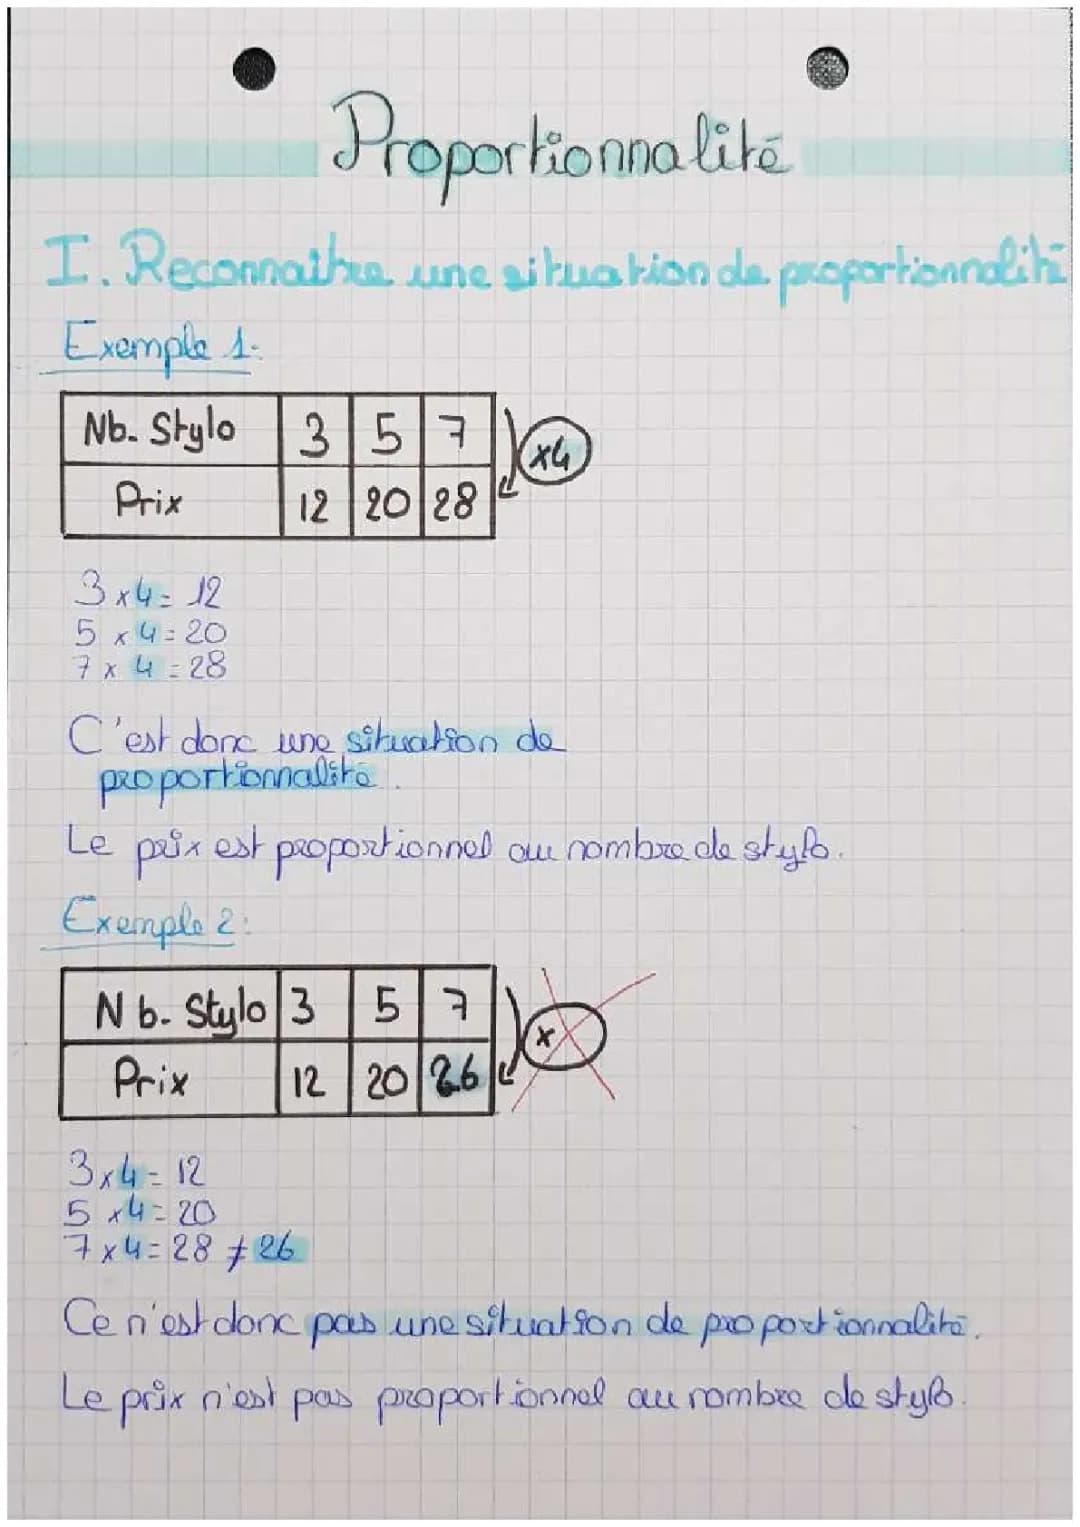 Proportionnalité
I. Reconnaitre une situation de proportionnalité
Exemple 1:
Nb. Stylo 3 5 7
x4
Prix 12 20 28
3 x 4 = 12
5 x 4 = 20
7 x 4 = 28
C'est donc une situation de
proportionnalité.
Le prix est proportionnel au nombre de stylo.
Exemple 2:
Nb. Stylo 3 5 7
x
Prix 12 20 26
3 x 4 = 12
5 x 4 = 20
7 x 4 = 28 ≠ 26
Ce n'est donc pas une situation de proportionnalité.
Le prix n'est pas proportionnel au nombre de stylo.